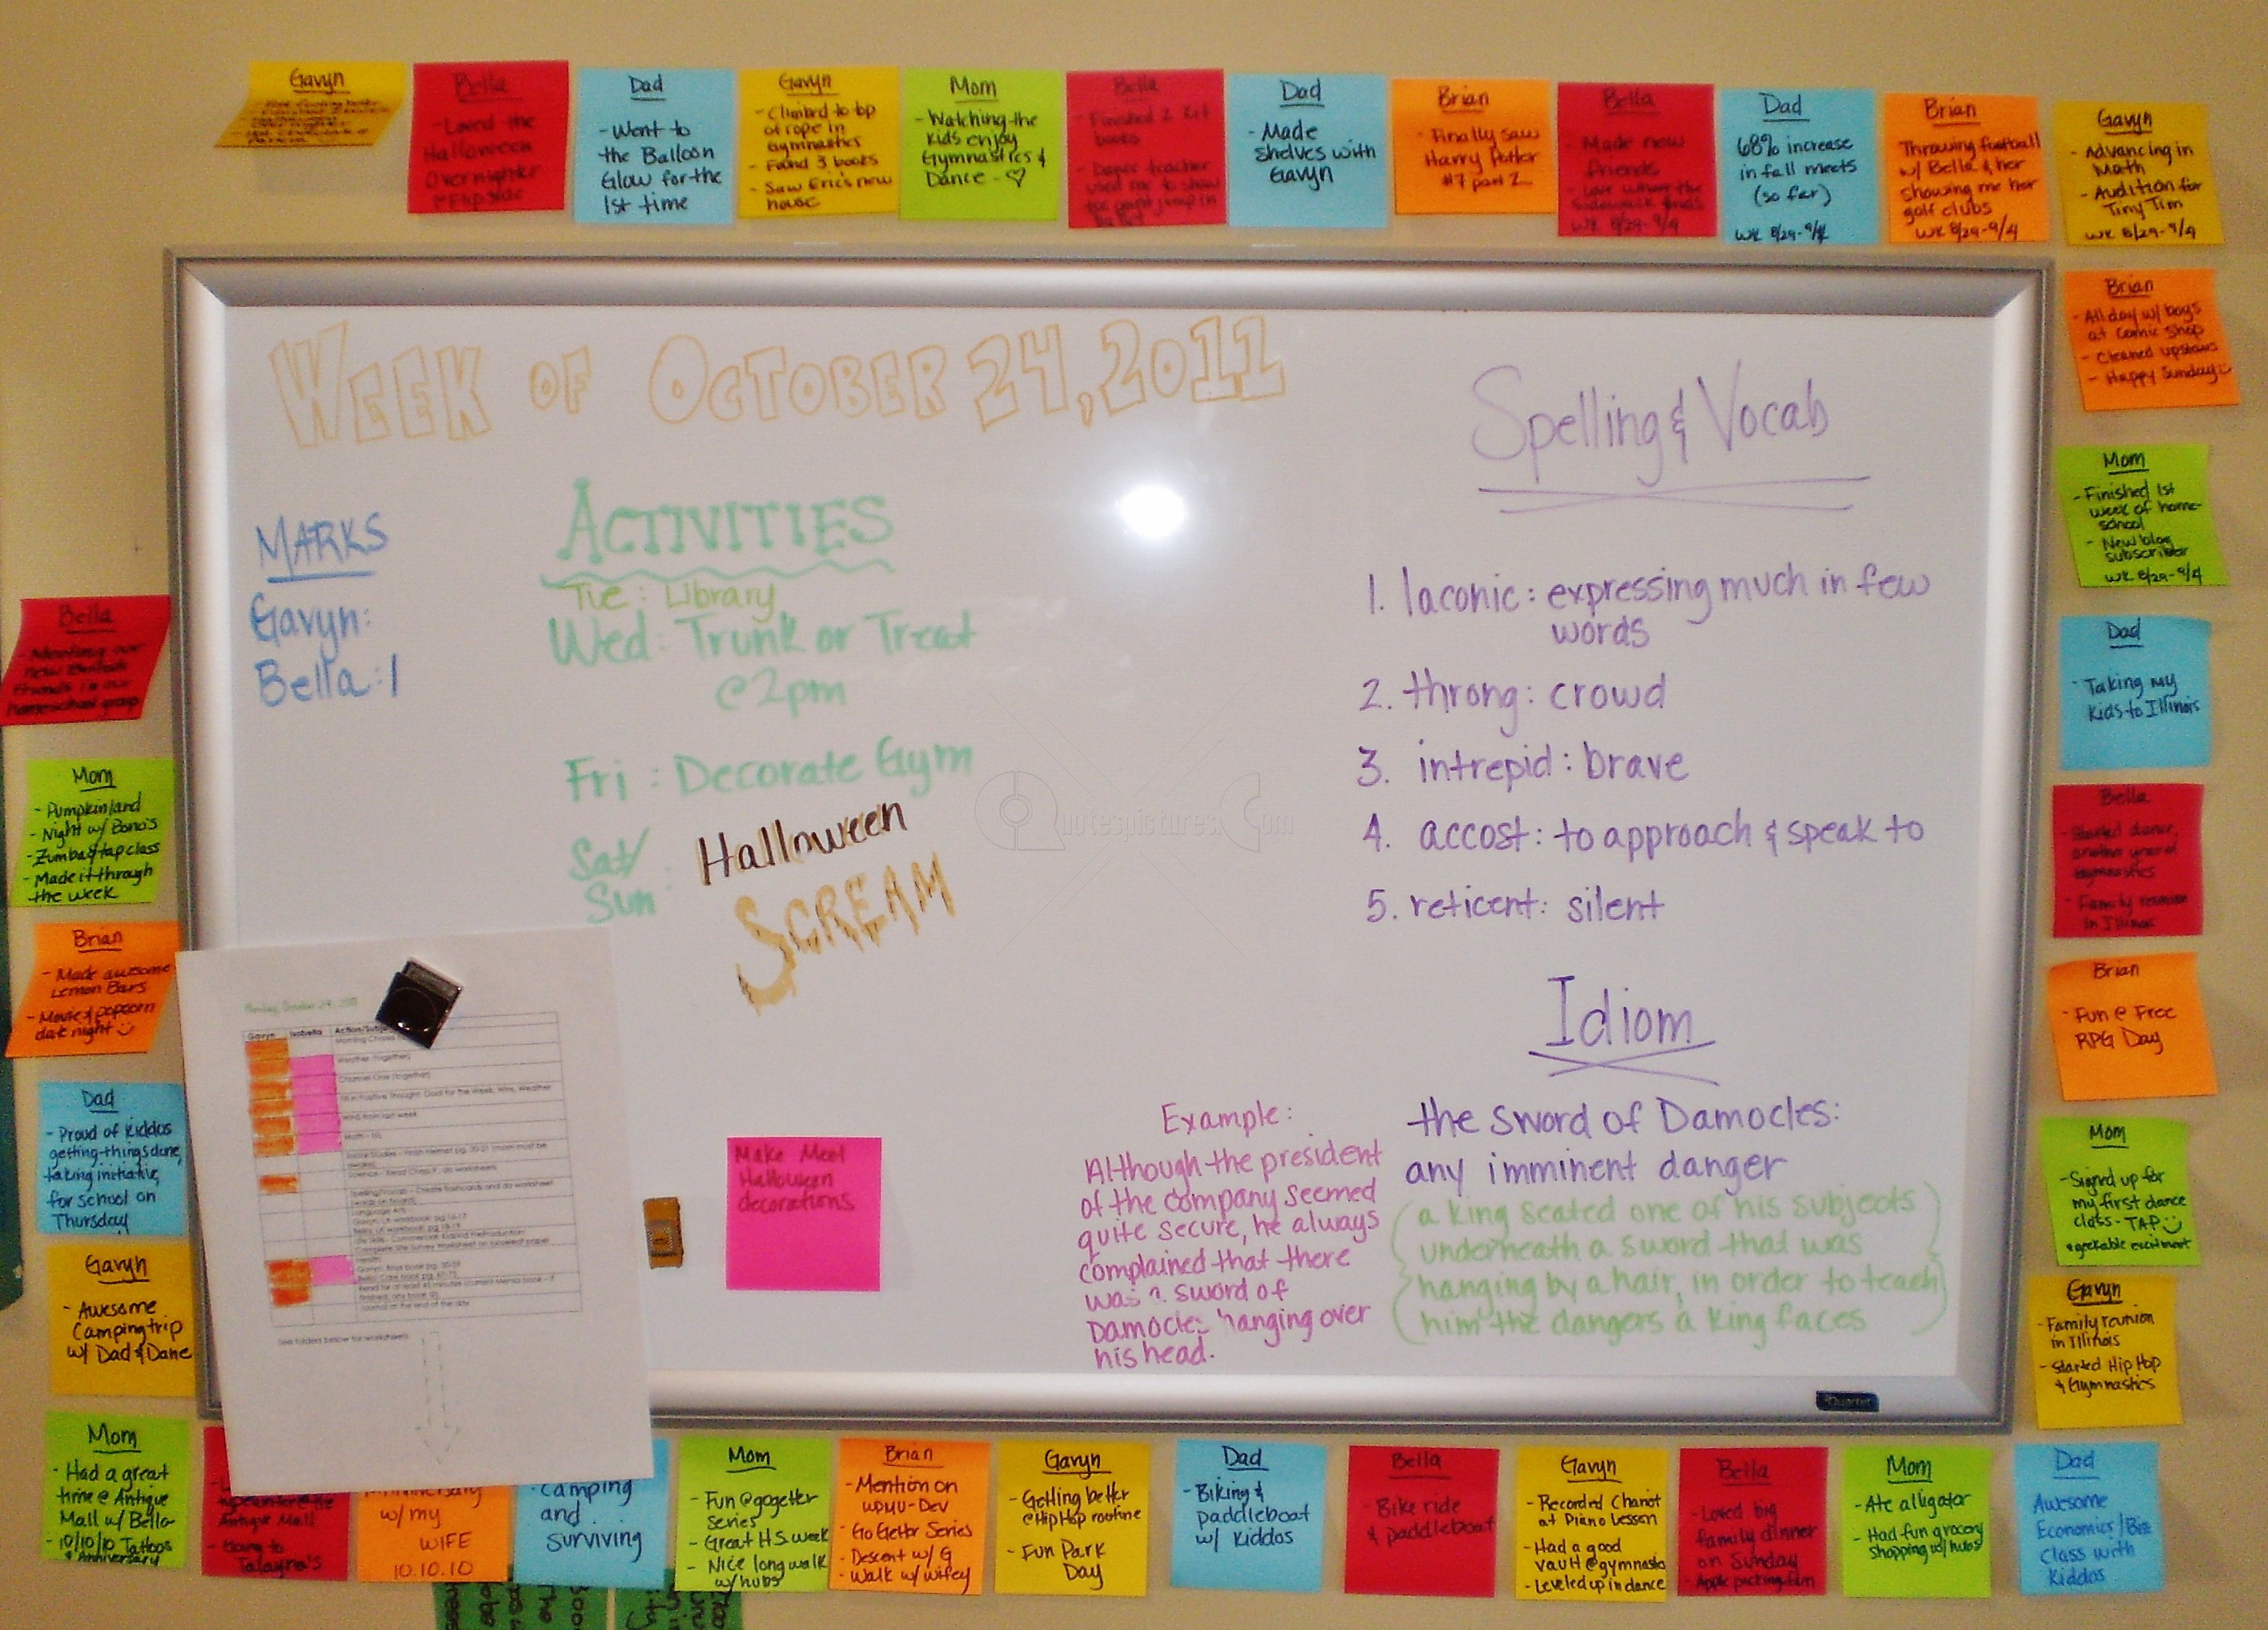 Gavyn
Bella
- Loved the
Halloween
Overnighter
@ Flipside
Dad
- Went to
the Balloon
Glow for the
1st time
Gavyn
- Climbed to top
of rope in
Gymnastics
- Found 3 books
- Saw Eric's new
house
Mom
- Watching the
kids enjoy
Gymnastics &
Dance - ♡
Bella
- Finished 2 Kit
books
- Dance teacher
used me to show
Dad
- Made
shelves with
Gavyn
Brian
- Finally saw
Harry Potter
#7 part 2
Bella
- Made new
friends
WK 8/29-9/4
Dad
68% increase
in fall meets
(so far)
WK 8/29-9/4
Brian
Throwing football
w/ Bella & her
showing me her
golf clubs
WK 8/29-9/4
Gavyn
- Advancing in
Math
- Audition for
Tiny Tim
WK 8/29-9/4
Brian
- All day w/ boys
at Comic Shop
- Cleaned upstairs
- Happy Sunday
Mom
- Finished 1st
week of home-
school
- New blog
subscriber
WK 8/29-9/4
Dad
- Taking my
kids to Illinois
Bella
- Started dance,
another year of
gymnastics
- Family reunion
in Illinois
Brian
- Fun @ Free
RPG Day
Mom
- Signed up for
my first dance
class - TAP
Gavyn
- Family reunion
in Illinois
- Started Hip Hop
& Gymnastics
WEEK OF OCTOBER 24, 2011
MARKS
Gavyn:
Bella: 1
ACTIVITIES
Tue: Library
Wed: Trunk or Treat
@ 2pm
Fri: Decorate Gym
Sat/
Sun: Halloween
SCREAM
Spelling & Vocab
1. laconic: expressing much in few
words
2. throng: crowd
3. intrepid: brave
4. accost: to approach & speak to
5. reticent: silent
Idiom
the sword of Damocles:
any imminent danger
(a king seated one of his subjects
underneath a sword that was
hanging by a hair, in order to teach
him the dangers a king faces)
Example:
Although the president
of the company seemed
quite secure, he always
complained that there
was a sword of
Damocles hanging over
his head.
Make Meet
Halloween
decorations
Quartet
Quotespictures.com
Bella
- Meeting our
new British
friends in our
homeschool group
Mom
- Pumpkinland
- Night w/ Bono's
- Zumba & tap class
- Made it through
the week
Brian
- Made awesome
Lemon Bars
- Movie & popcorn
date night
Dad
- Proud of kiddos
getting things done,
taking initiative,
for school on
Thursday
Gavyn
- Awesome
Camping trip
w/ Dad & Dane
Monday, October 24, 2011
Gavyn Isabella Action/Subject
Morning Chores
Weather (together)
Channel One (together)
Fill in Positive Thought, Goal for the Week, Wins, Weather
wins from last week
Journal at the end of the day
See folders below for worksheets
Mom
- Had a great
time @ Antique
Mall w/ Bella
- 10/10/10 Tattoos
& Anniversary
Antique Mall
- Going to
Talayna's
Anniversary
w/ my
WIFE
10.10.10
- Camping
and
surviving
Mom
- Fun @ gogetter
series
- Great H.S. week
- Nice long walk
w/ hubs
Brian
- Mention on
WDMU-Dev
- Go Getter Series
- Descent w/ G
- Walk w/ wifey
Gavyn
- Getting better
@ Hip Hop routine
- Fun Park
Day
Dad
- Biking &
paddleboat
w/ kiddos
Bella
- Bike ride
& paddleboat
Gavyn
- Recorded Chariot
at Piano Lesson
- Had a good
vault @ gymnastics
- Leveled up in dance
Bella
- Loved big
family dinner
on Sunday
- Apple picking fun
Mom
- Ate alligator
- Had fun grocery
shopping w/ hubs
Dad
Awesome
Economics/Biz
Class with
Kiddos